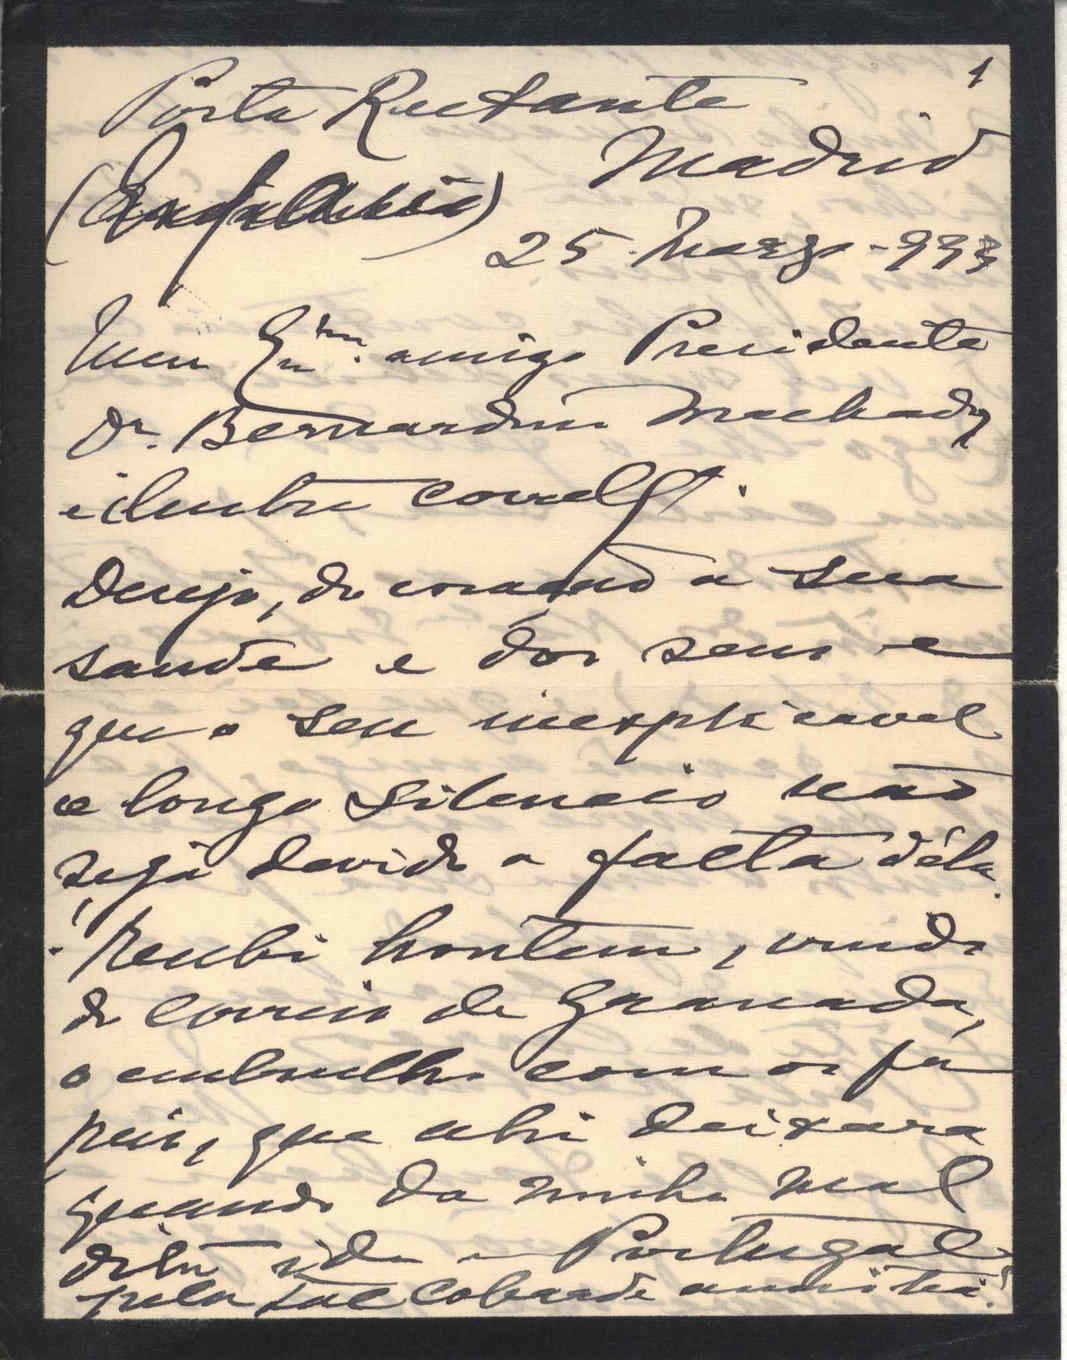 1
Posta Restante
Madrid
25 Março - 933
Meu Exmo. amigo Presidente
Dr. Bernardino Machado
e ilustre correlgº.
Desejo, do coração a sua
saude e dos seus e
que o seu inexplicavel
e longo silencio não
seja devido a falta déla.
Recebi hontem, vindo
do correio de Granada,
o embrulho com os pa
peis, que ahi deixara
quando da minha mal
dita ida a Portugal
pela tal cobarde amnistia!